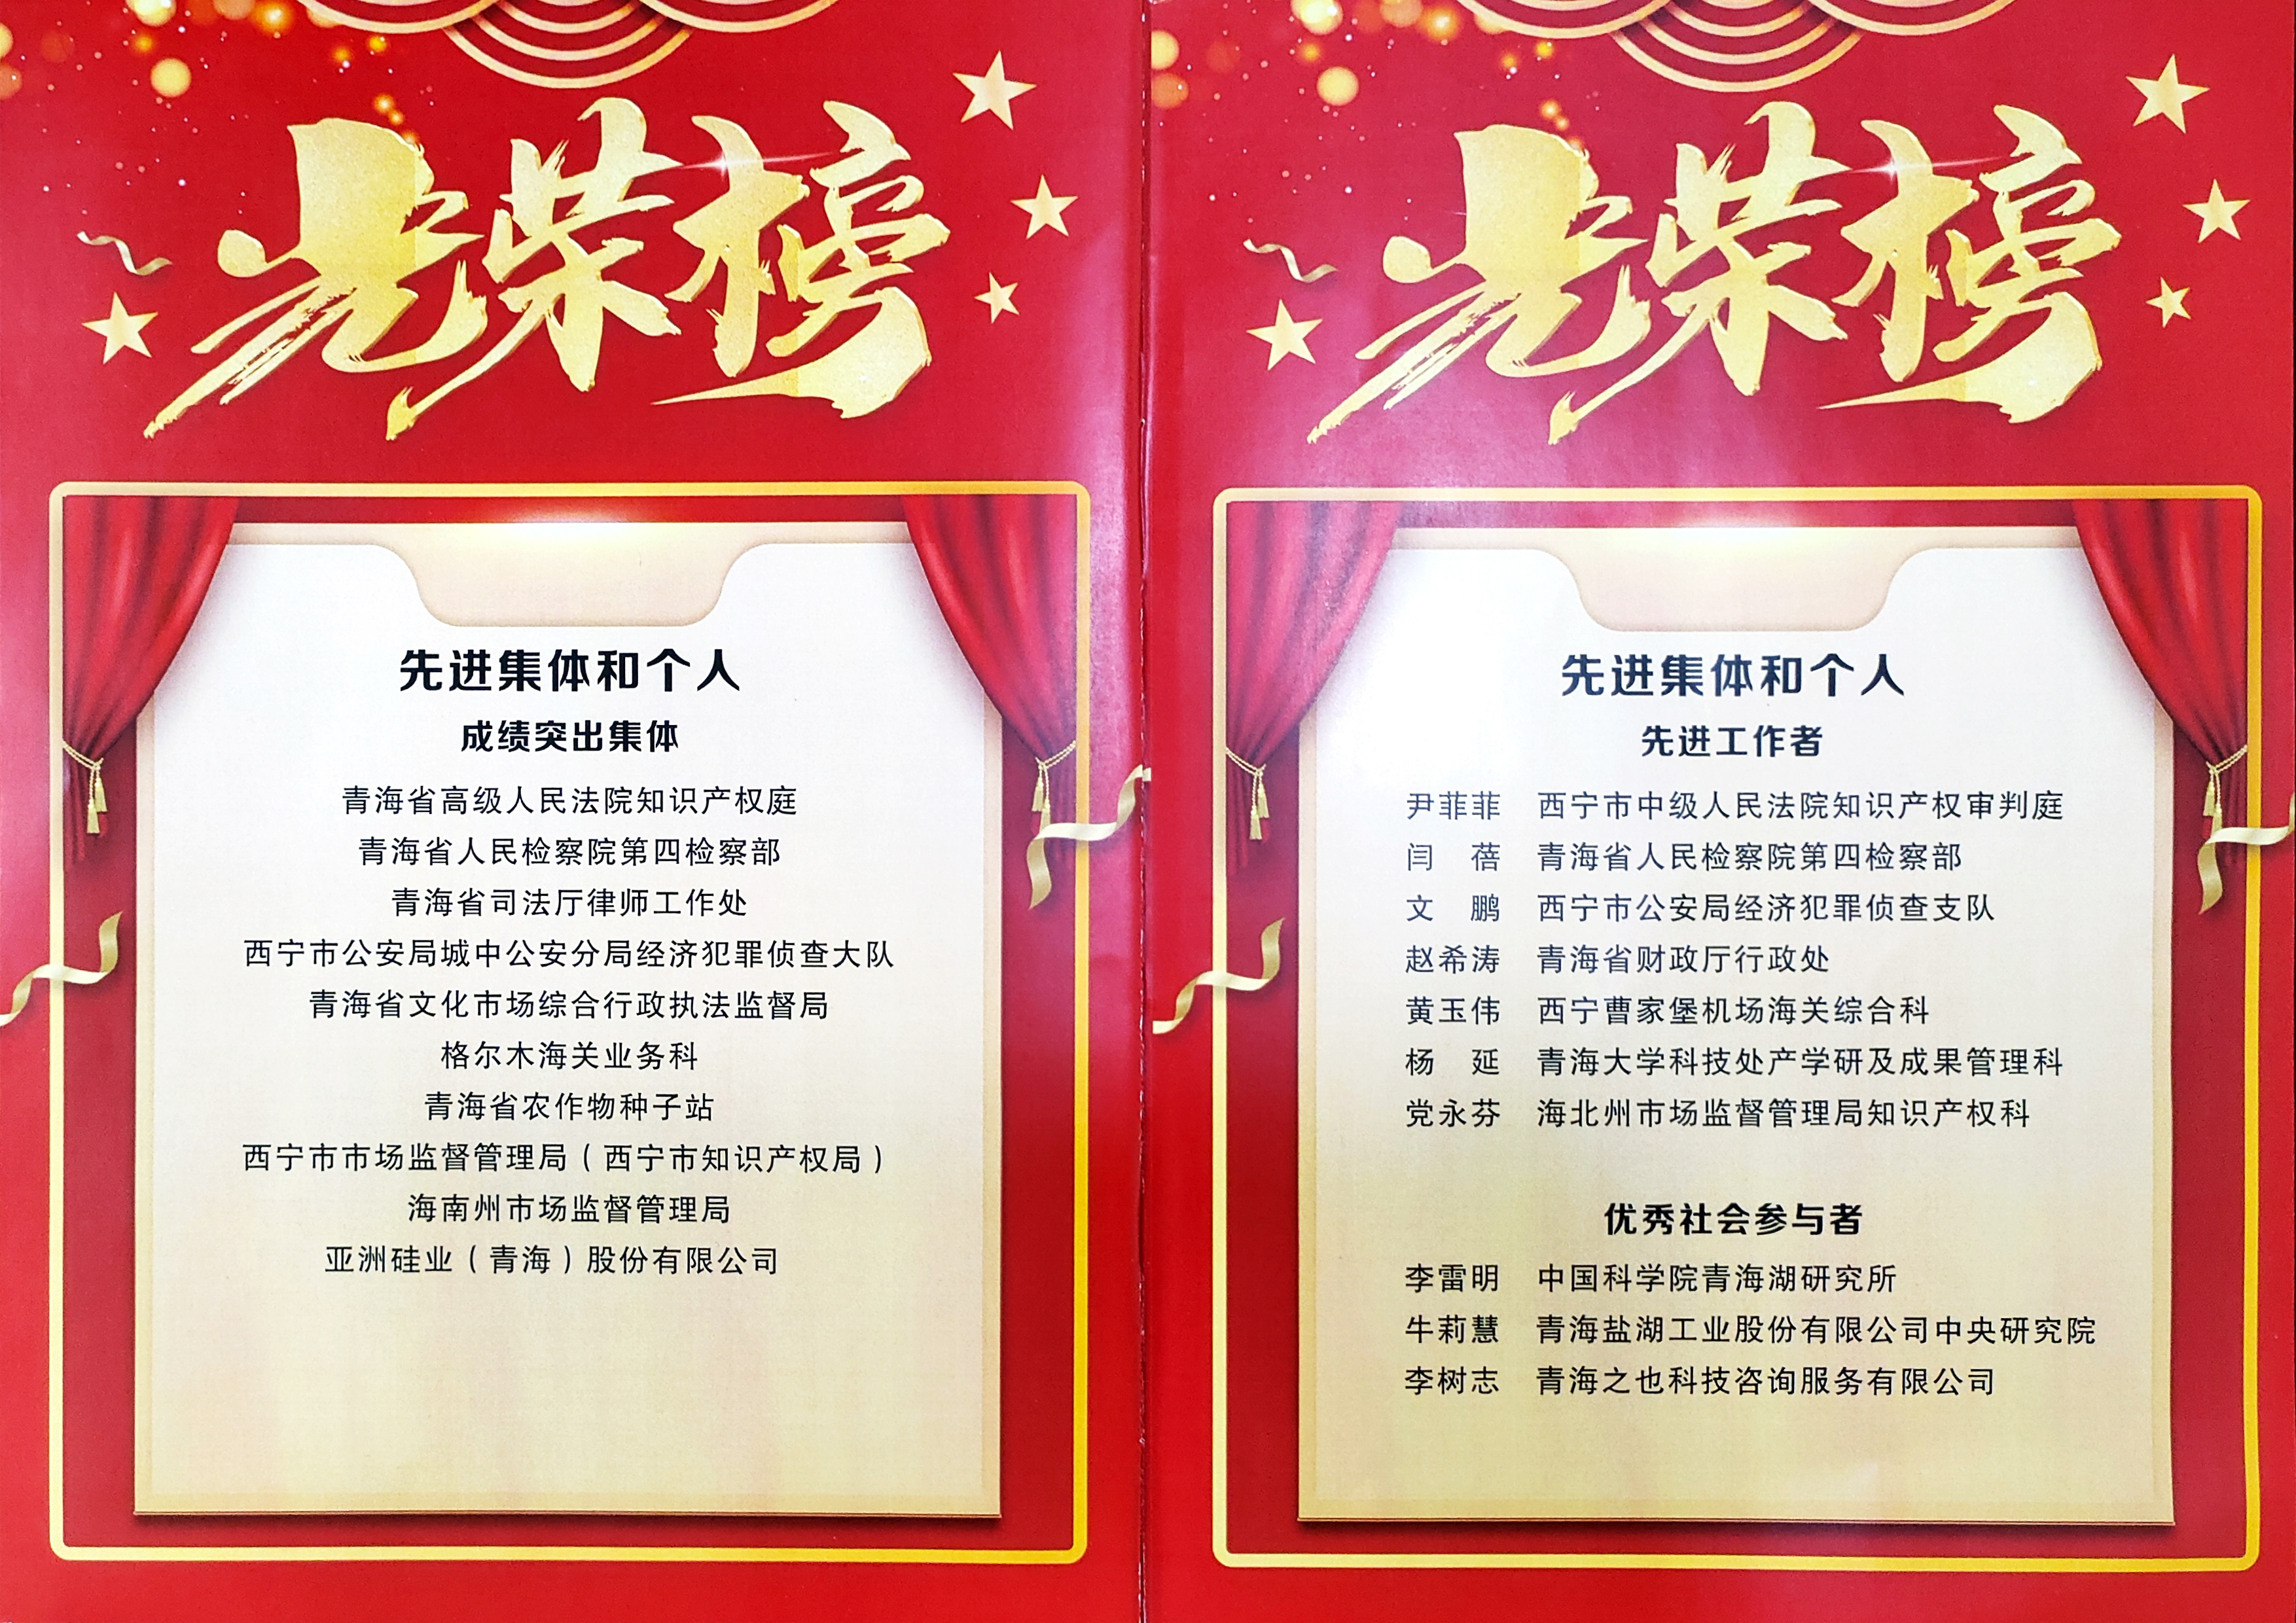 光荣榜
先进集体和个人
成绩突出集体
青海省高级人民法院知识产权庭
青海省人民检察院第四检察部
青海省司法厅律师工作处
西宁市公安局城中公安分局经济犯罪侦查大队
青海省文化市场综合行政执法监督局
格尔木海关业务科
青海省农作物种子站
西宁市市场监督管理局（西宁市知识产权局）
海南州市场监督管理局
亚洲硅业（青海）股份有限公司
光荣榜
先进集体和个人
先进工作者
尹菲菲 西宁市中级人民法院知识产权审判庭
闫 蓓 青海省人民检察院第四检察部
文 鹏 西宁市公安局经济犯罪侦查支队
赵希涛 青海省财政厅行政处
黄玉伟 西宁曹家堡机场海关综合科
杨 延 青海大学科技处产学研及成果管理科
党永芬 海北州市场监督管理局知识产权科
优秀社会参与者
李雷明 中国科学院青海湖研究所
牛莉慧 青海盐湖工业股份有限公司中央研究院
李树志 青海之也科技咨询服务有限公司